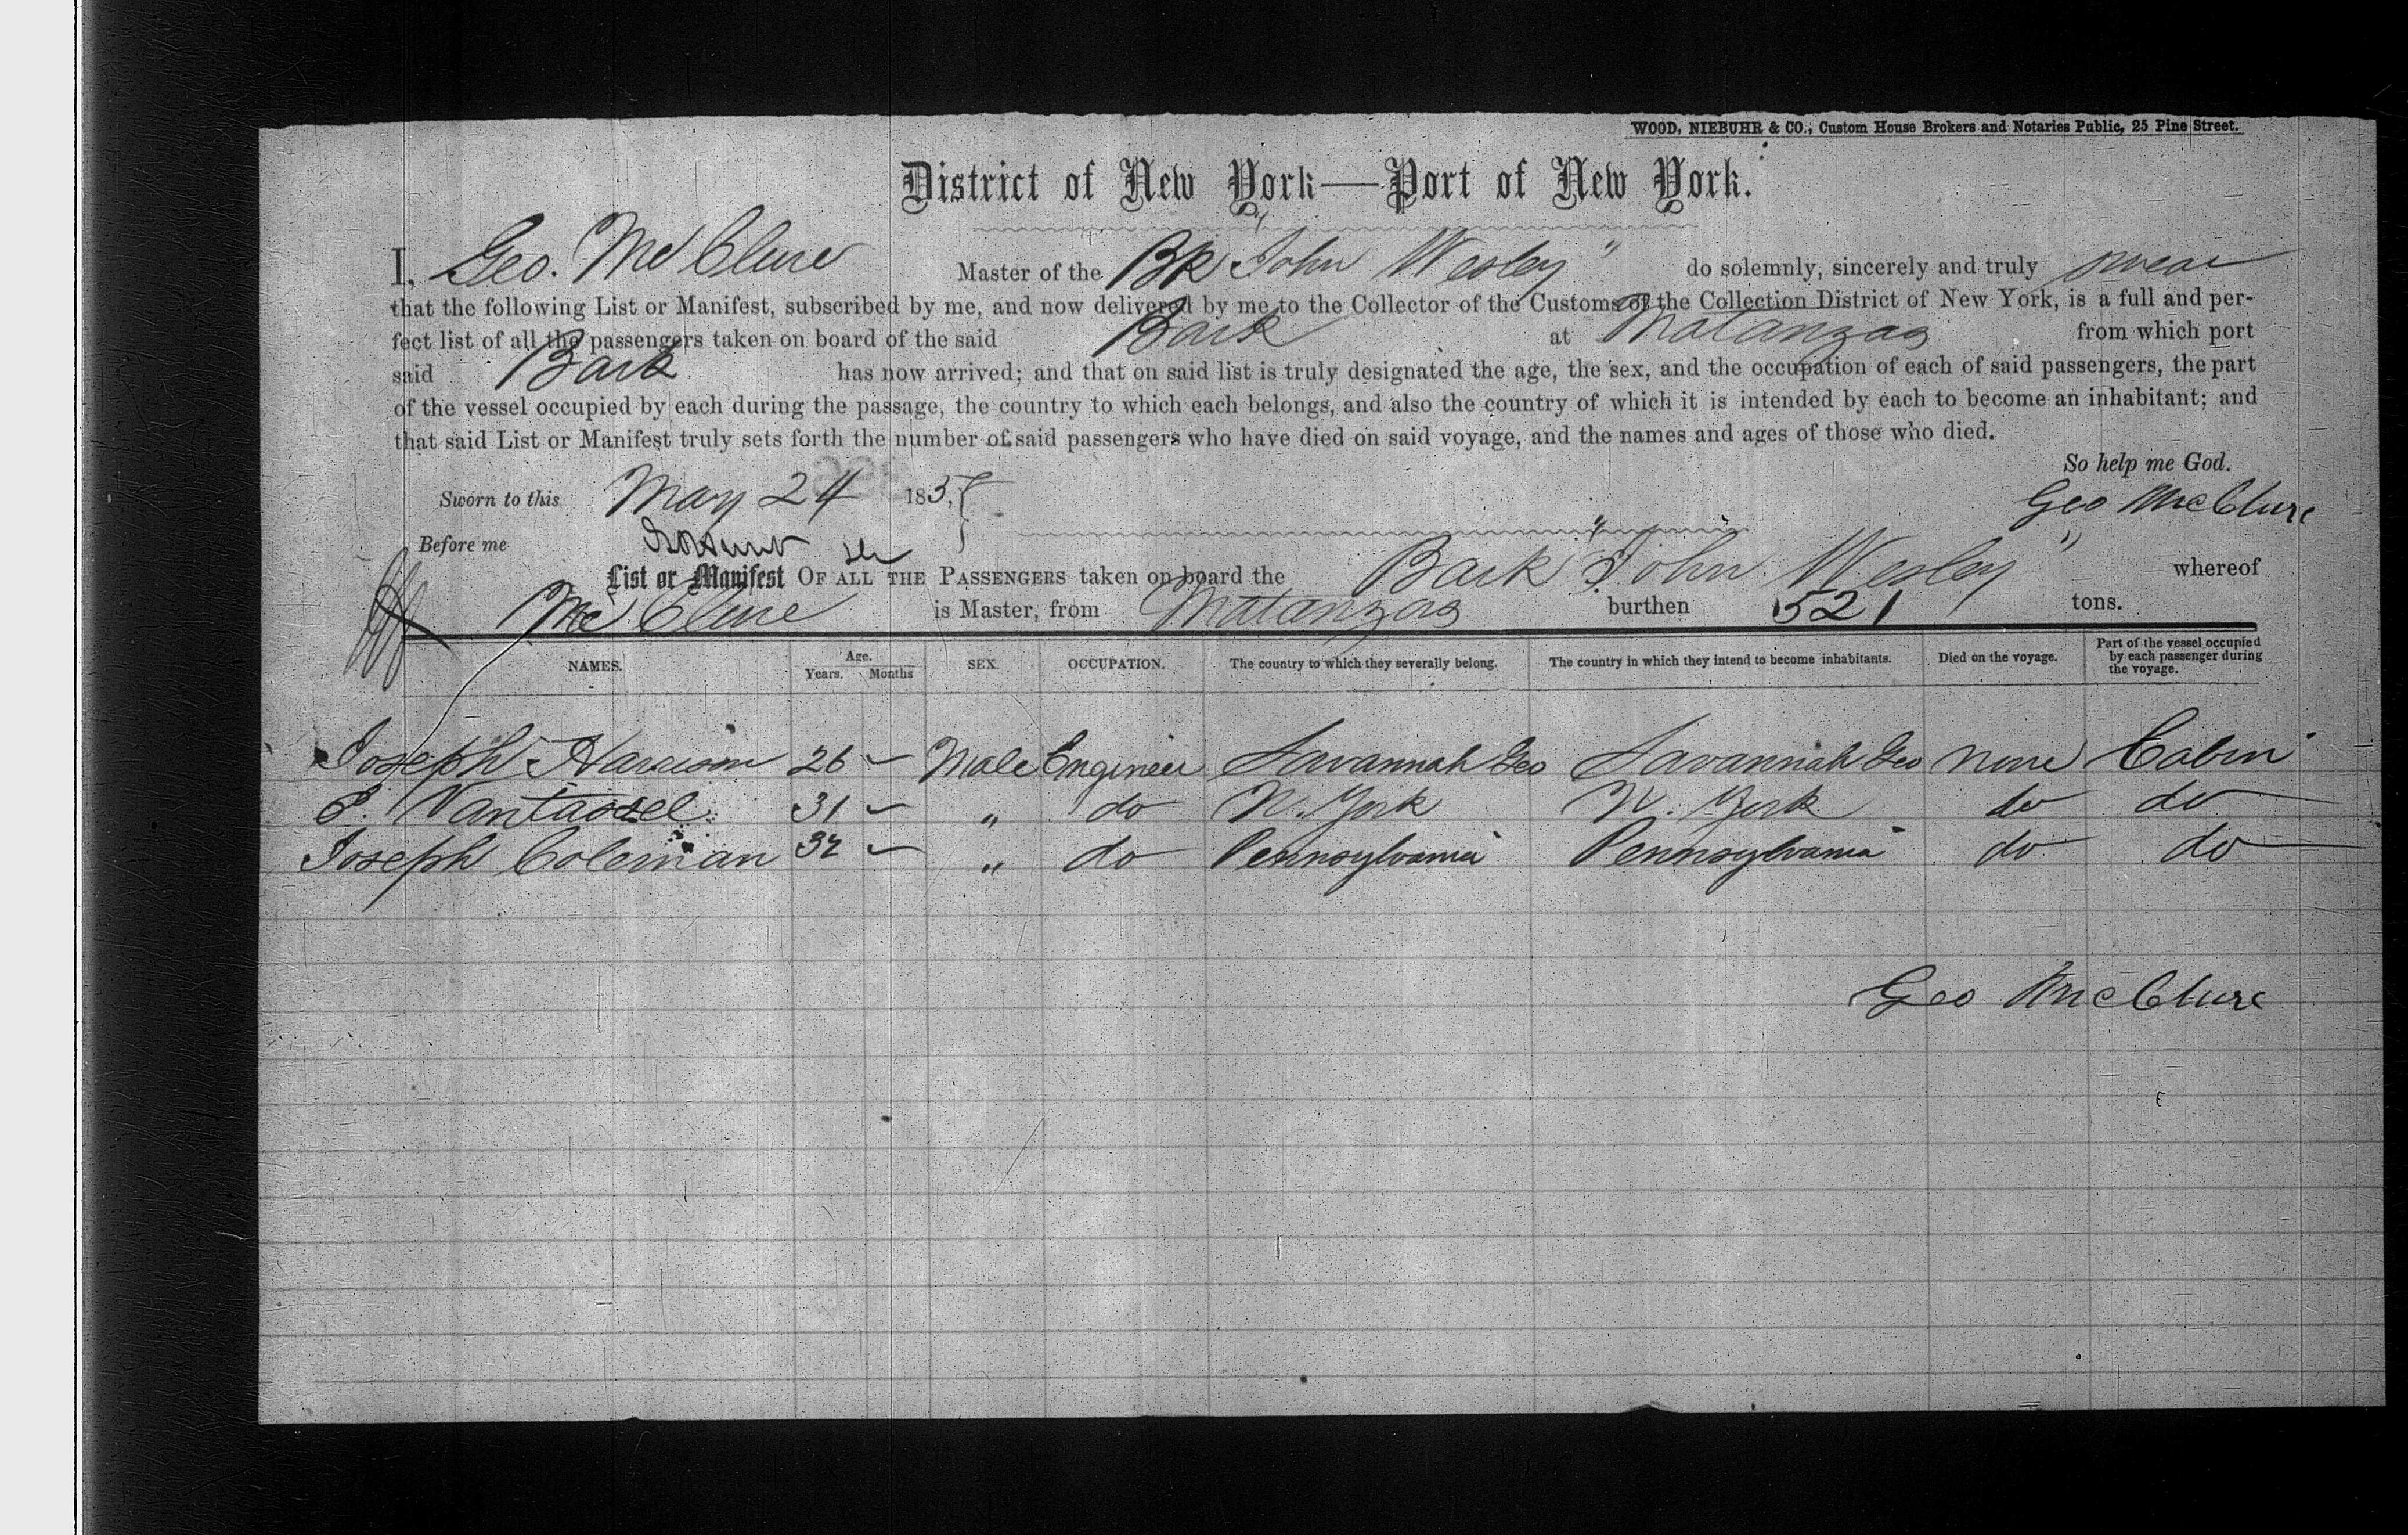 WOOD, NIEBUHR & CO., Custom House Brokers and Notaries Public, 25 Pine Street.
District of New York—Port of New York.
I, Geo. McClure Master of the Bk "John Wesley" do solemnly, sincerely and truly swear
that the following List or Manifest, subscribed by me, and now delivered by me to the Collector of the Customs of the Collection District of New York, is a full and per-
fect list of all the passengers taken on board of the said Bark at Matanzas from which port
said Bark has now arrived; and that on said list is truly designated the age, the sex, and the occupation of each of said passengers, the part
of the vessel occupied by each during the passage, the country to which each belongs, and also the country of which it is intended by each to become an inhabitant; and
that said List or Manifest truly sets forth the number of said passengers who have died on said voyage, and the names and ages of those who died.
So help me God.
Sworn to this May 24 185 Geo McClure
Before me
List or Manifest OF ALL THE PASSENGERS taken on board the Bark "John Wesley" whereof
McClure is Master, from Matanzas burthen 521 tons.
NAMES. Age. Years. Months SEX. OCCUPATION. The country to which they severally belong. The country in which they intend to become inhabitants. Died on the voyage. Part of the vessel occupied by each passenger during the voyage.
Joseph Harrison 26 Male Engineer Savannah Geo Savannah Geo None Cabin
Vantassel 31 " do N. York N. York do do
Joseph Coleman 32 " do Pennsylvania Pennsylvania do do
Geo McClure